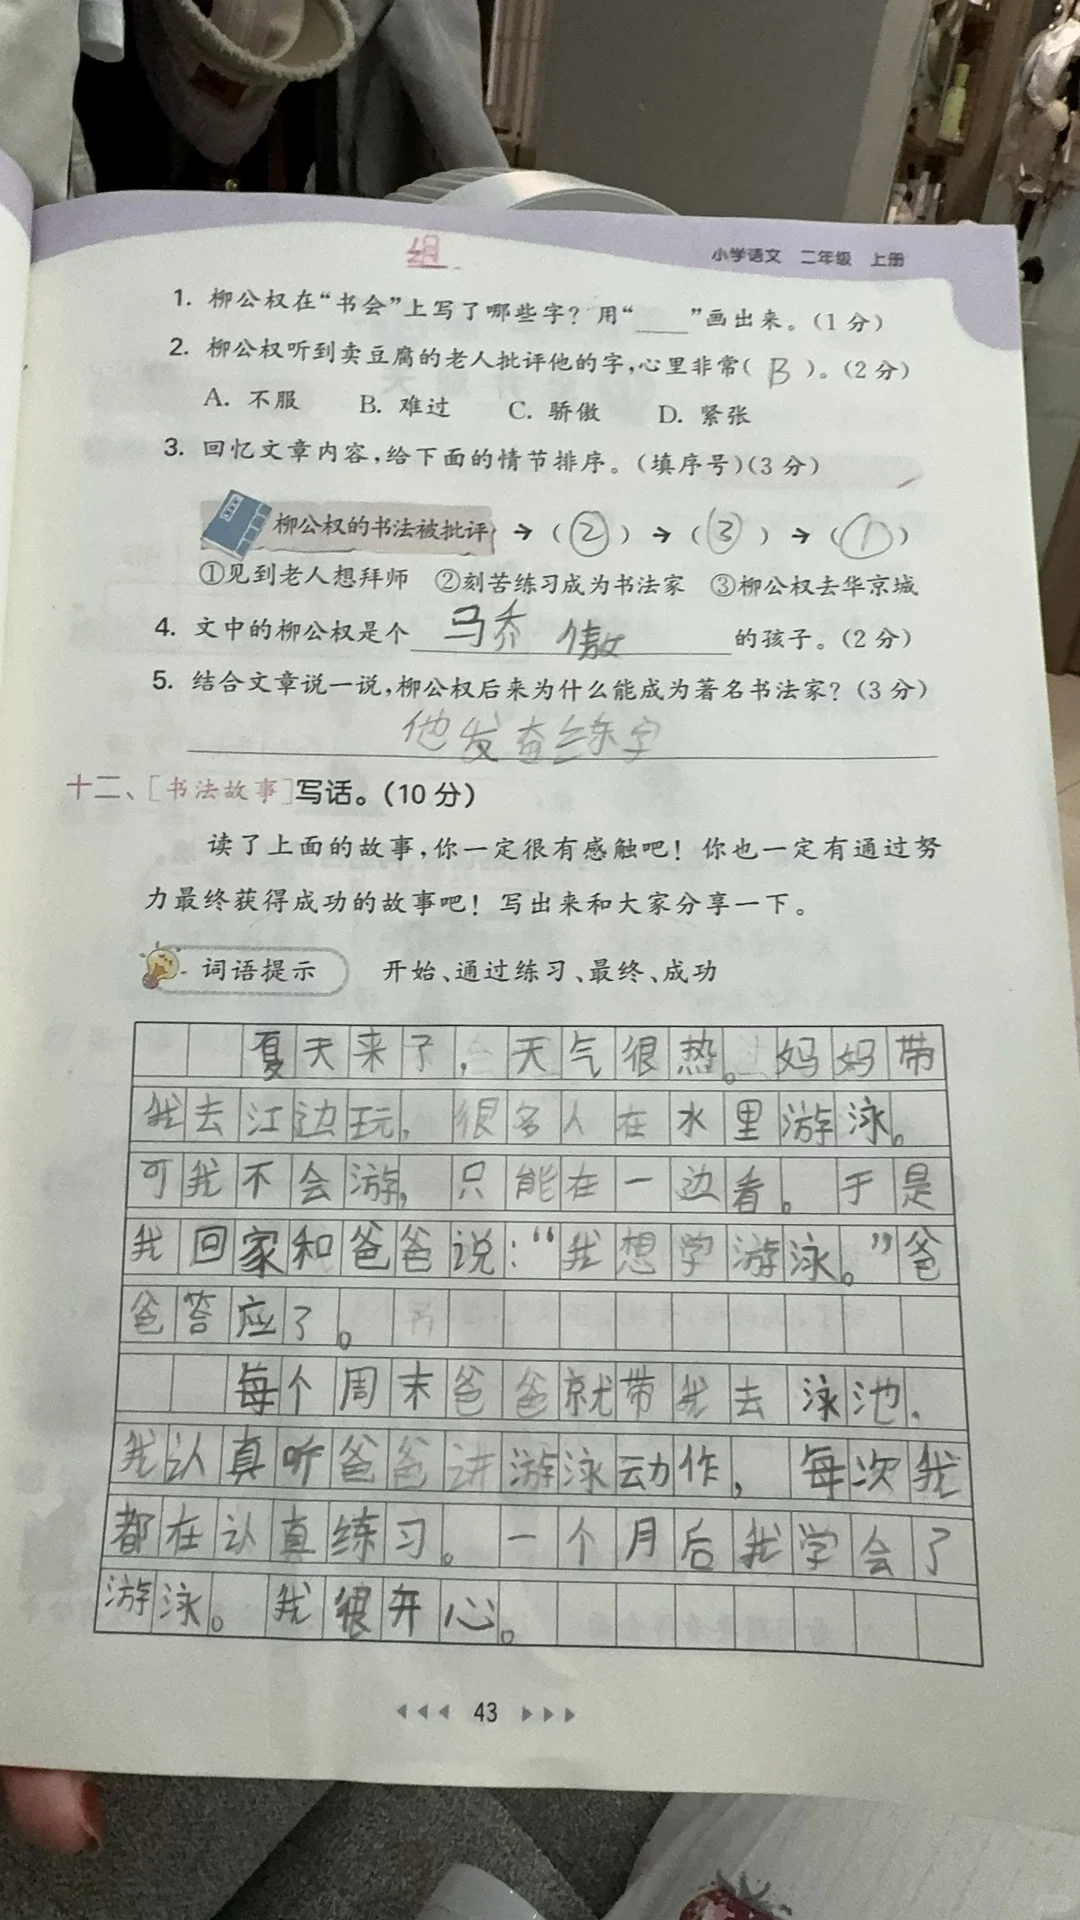 组
小学语文 二年级 上册
1. 柳公权在“书会”上写了哪些字？用“____”画出来。(1分)
2. 柳公权听到卖豆腐的老人批评他的字,心里非常( B )。(2分)
A. 不服 B. 难过 C. 骄傲 D. 紧张
3. 回忆文章内容,给下面的情节排序。(填序号)(3分)
柳公权的书法被批评 → (②) → (③) → (①)
①见到老人想拜师 ②刻苦练习成为书法家 ③柳公权去华京城
4. 文中的柳公权是个 骄傲 的孩子。(2分)
5. 结合文章说一说,柳公权后来为什么能成为著名书法家？(3分)
他发奋练字
十二、[书法故事]写话。(10分)
读了上面的故事,你一定很有感触吧！你也一定有通过努
力最终获得成功的故事吧！写出来和大家分享一下。
词语提示 开始、通过练习、最终、成功
夏天来了，天气很热。妈妈带
我去江边玩，很多人在水里游泳。
可我不会游，只能在一边看。于是
我回家和爸爸说：“我想学游泳。”爸
爸答应了。
每个周末爸爸就带我去泳池.
我认真听爸爸讲游泳动作，每次我
都在认真练习。一个月后我学会了
游泳。我很开心。
43